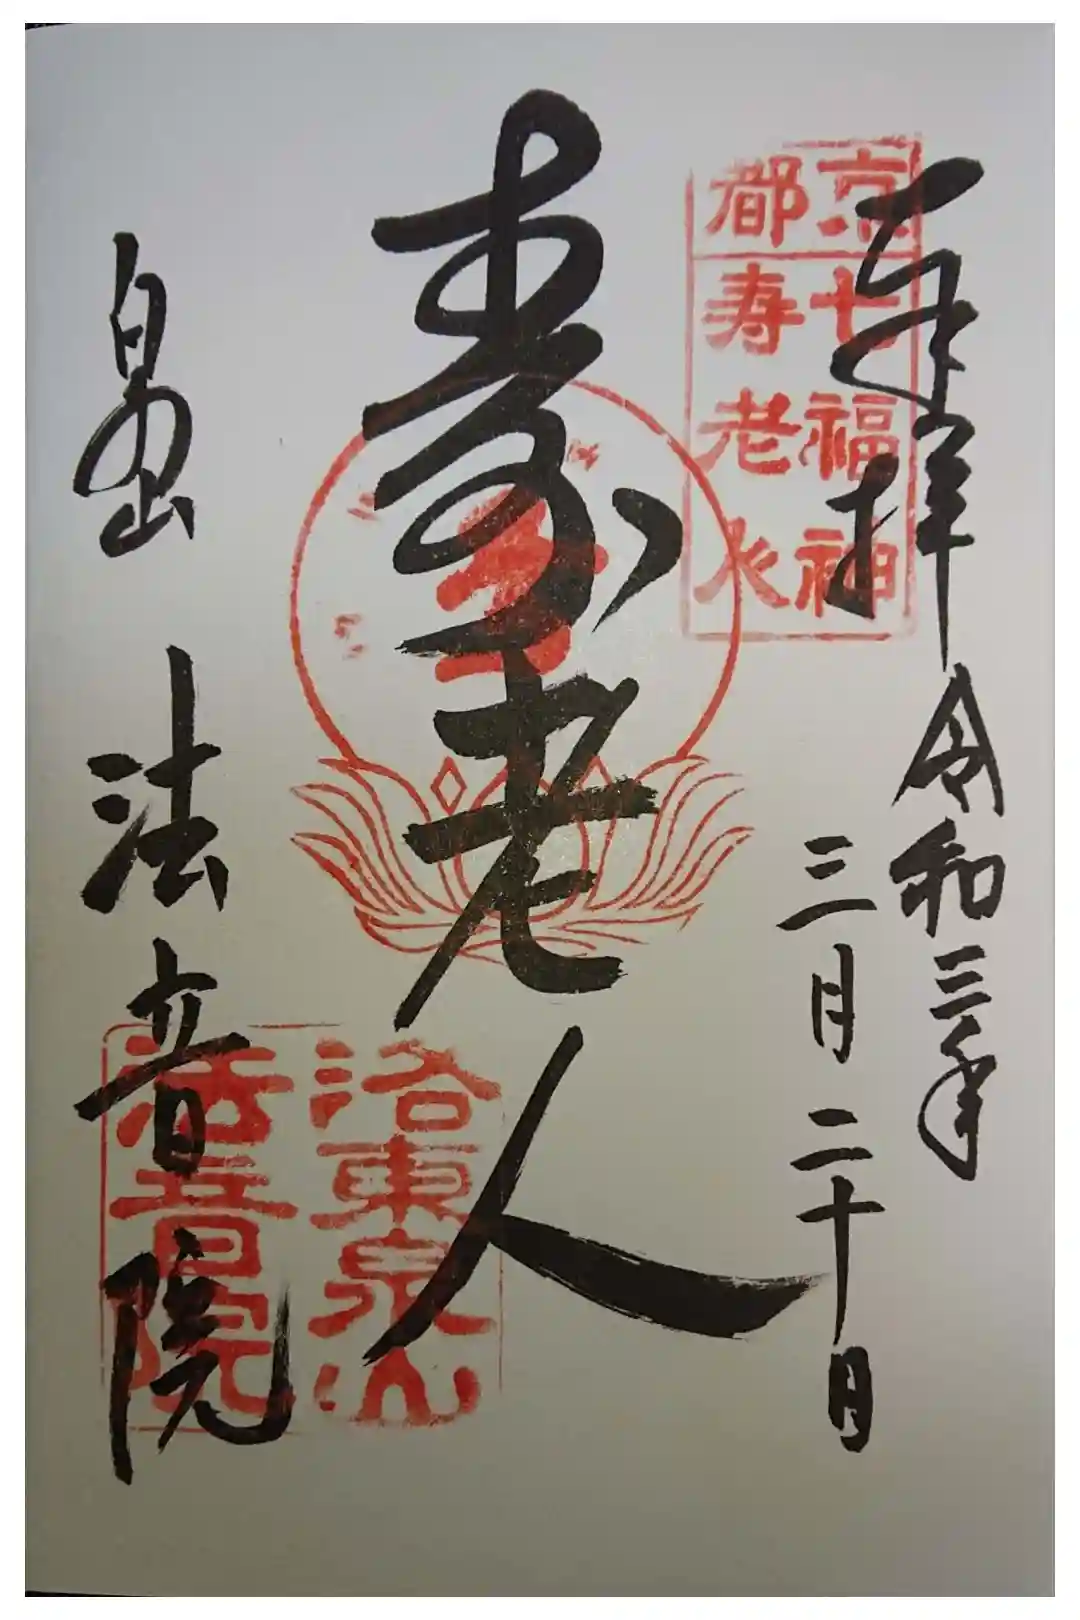 奉拝
令和三年
三月二十日
京都
七福神
寿老
寿老人
泉山
法音院
洛東泉山
法音院